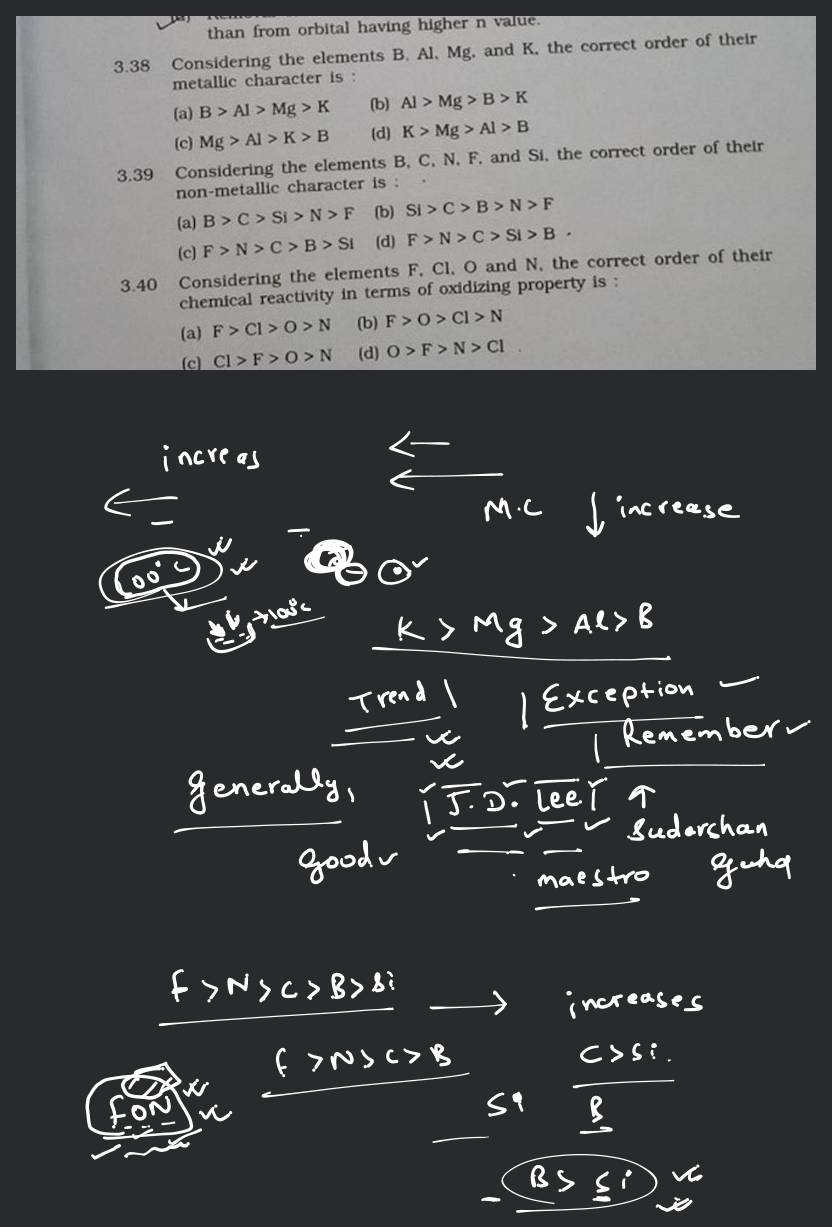 than from orbital having higher n value.
3.38 Considering the elements B, Al, Mg, and K, the correct order of their
metallic character is :
(a) B > Al > Mg > K (b) Al > Mg > B > K
(c) Mg > Al > K > B (d) K > Mg > Al > B
3.39 Considering the elements B, C, N, F, and Si, the correct order of their
non-metallic character is :
(a) B > C > Si > N > F (b) Si > C > B > N > F
(c) F > N > C > B > Si (d) F > N > C > Si > B
3.40 Considering the elements F, Cl, O and N, the correct order of their
chemical reactivity in terms of oxidizing property is :
(a) F > Cl > O > N (b) F > O > Cl > N
(c) Cl > F > O > N (d) O > F > N > Cl
increas
M.C ↓ increase
100°C
→100°C
K > Mg > Al > B
Trend | | Exception
| Remember
generally, J.D. Lee ↑
Sudarshan
good maestro guha
f > N > C > B > Si → increases
f > N > C > B C > Si.
fON Si B
B > Si